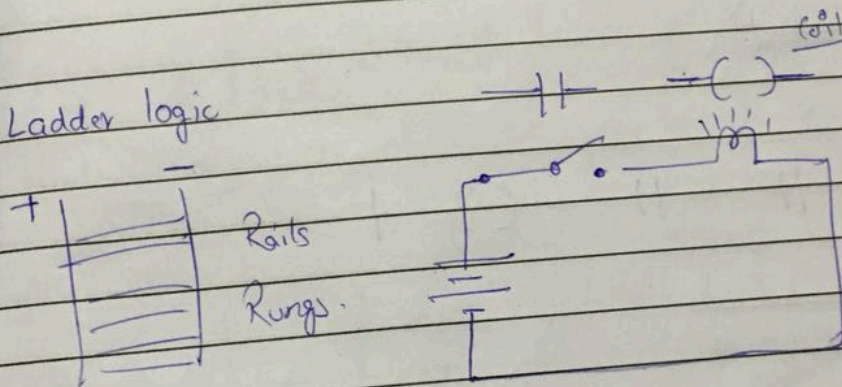 coil
Ladder logic
+ -
Rails
Rungs.